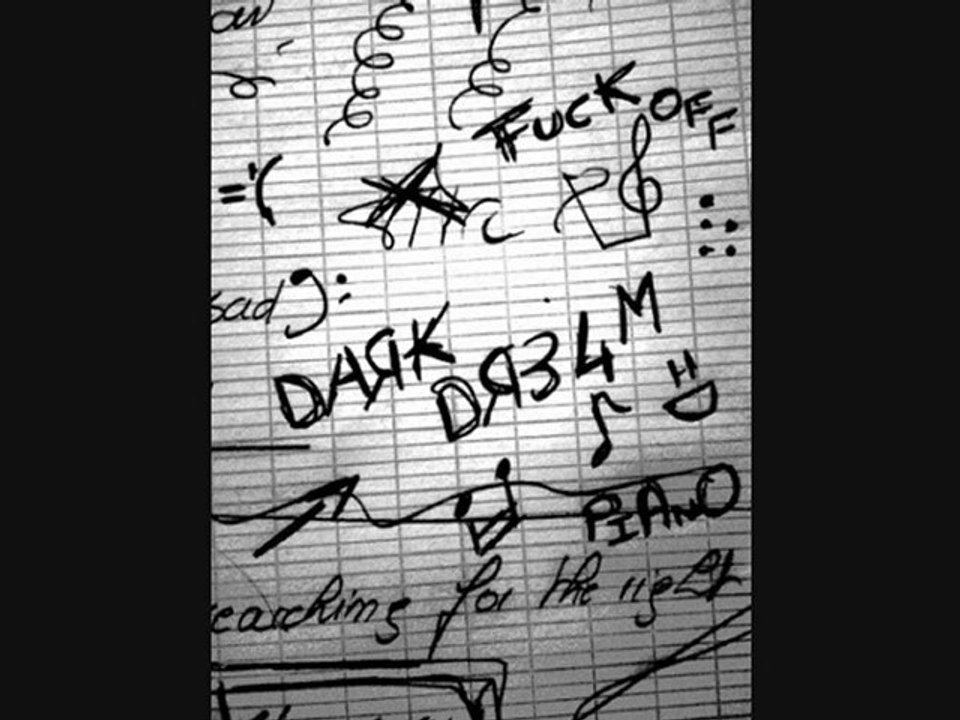 FUCK OFF
='(
sad ):
DAЯK
DЯ34M
=D
PIANO
earching for the right